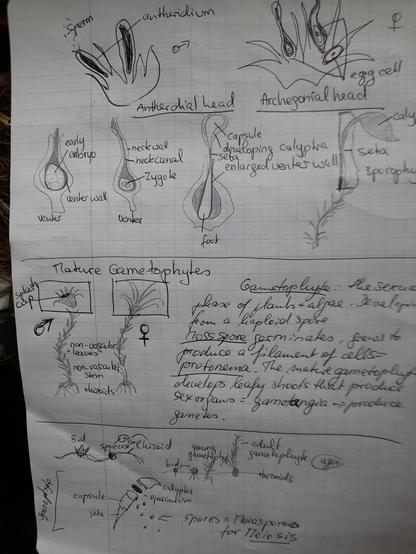 sperm
antheridium
♂
♀
egg cell
Antherdial head
Archegonial head
early
embryo
venter wall
venter
neck wall
neck canal
Zygote
venter
capsule
developing calyptra
seta
enlarged venter wall
foot
seta
Mature Gametophytes
splash
cup
♂
♀
non-vascular
leaves
non-vascular
stem
rhizoids
Gametophyte: the sexual
phase of plants + algae. Developing
from a haploid spore
Moss spore germinates, grows to
produce a filament of cells =
protonema. The mature gametophyt
develops leafy shoots that produce
sex organs = gametangia → produce
gametes.
Bud
spore case
Rhizoid
bud
young
gametophyte
adult
gametophyte
rhizoids
capsule
seta
calyptra
operculum
spores = Meiospores
for Meiosis